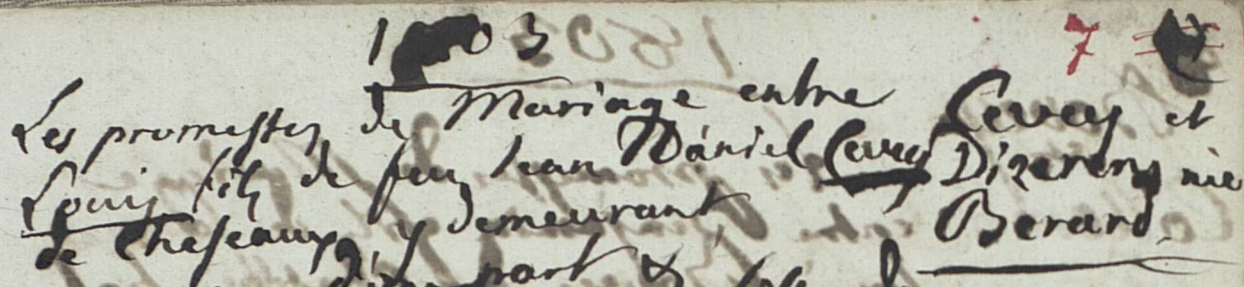 1803
7
Les promesses de Mariage entre
Louis fils de feu Jean Daniel Cevey
de Cheseaux, y demeurant
d'une part &
Cevey et
Dizerens née
Berard.